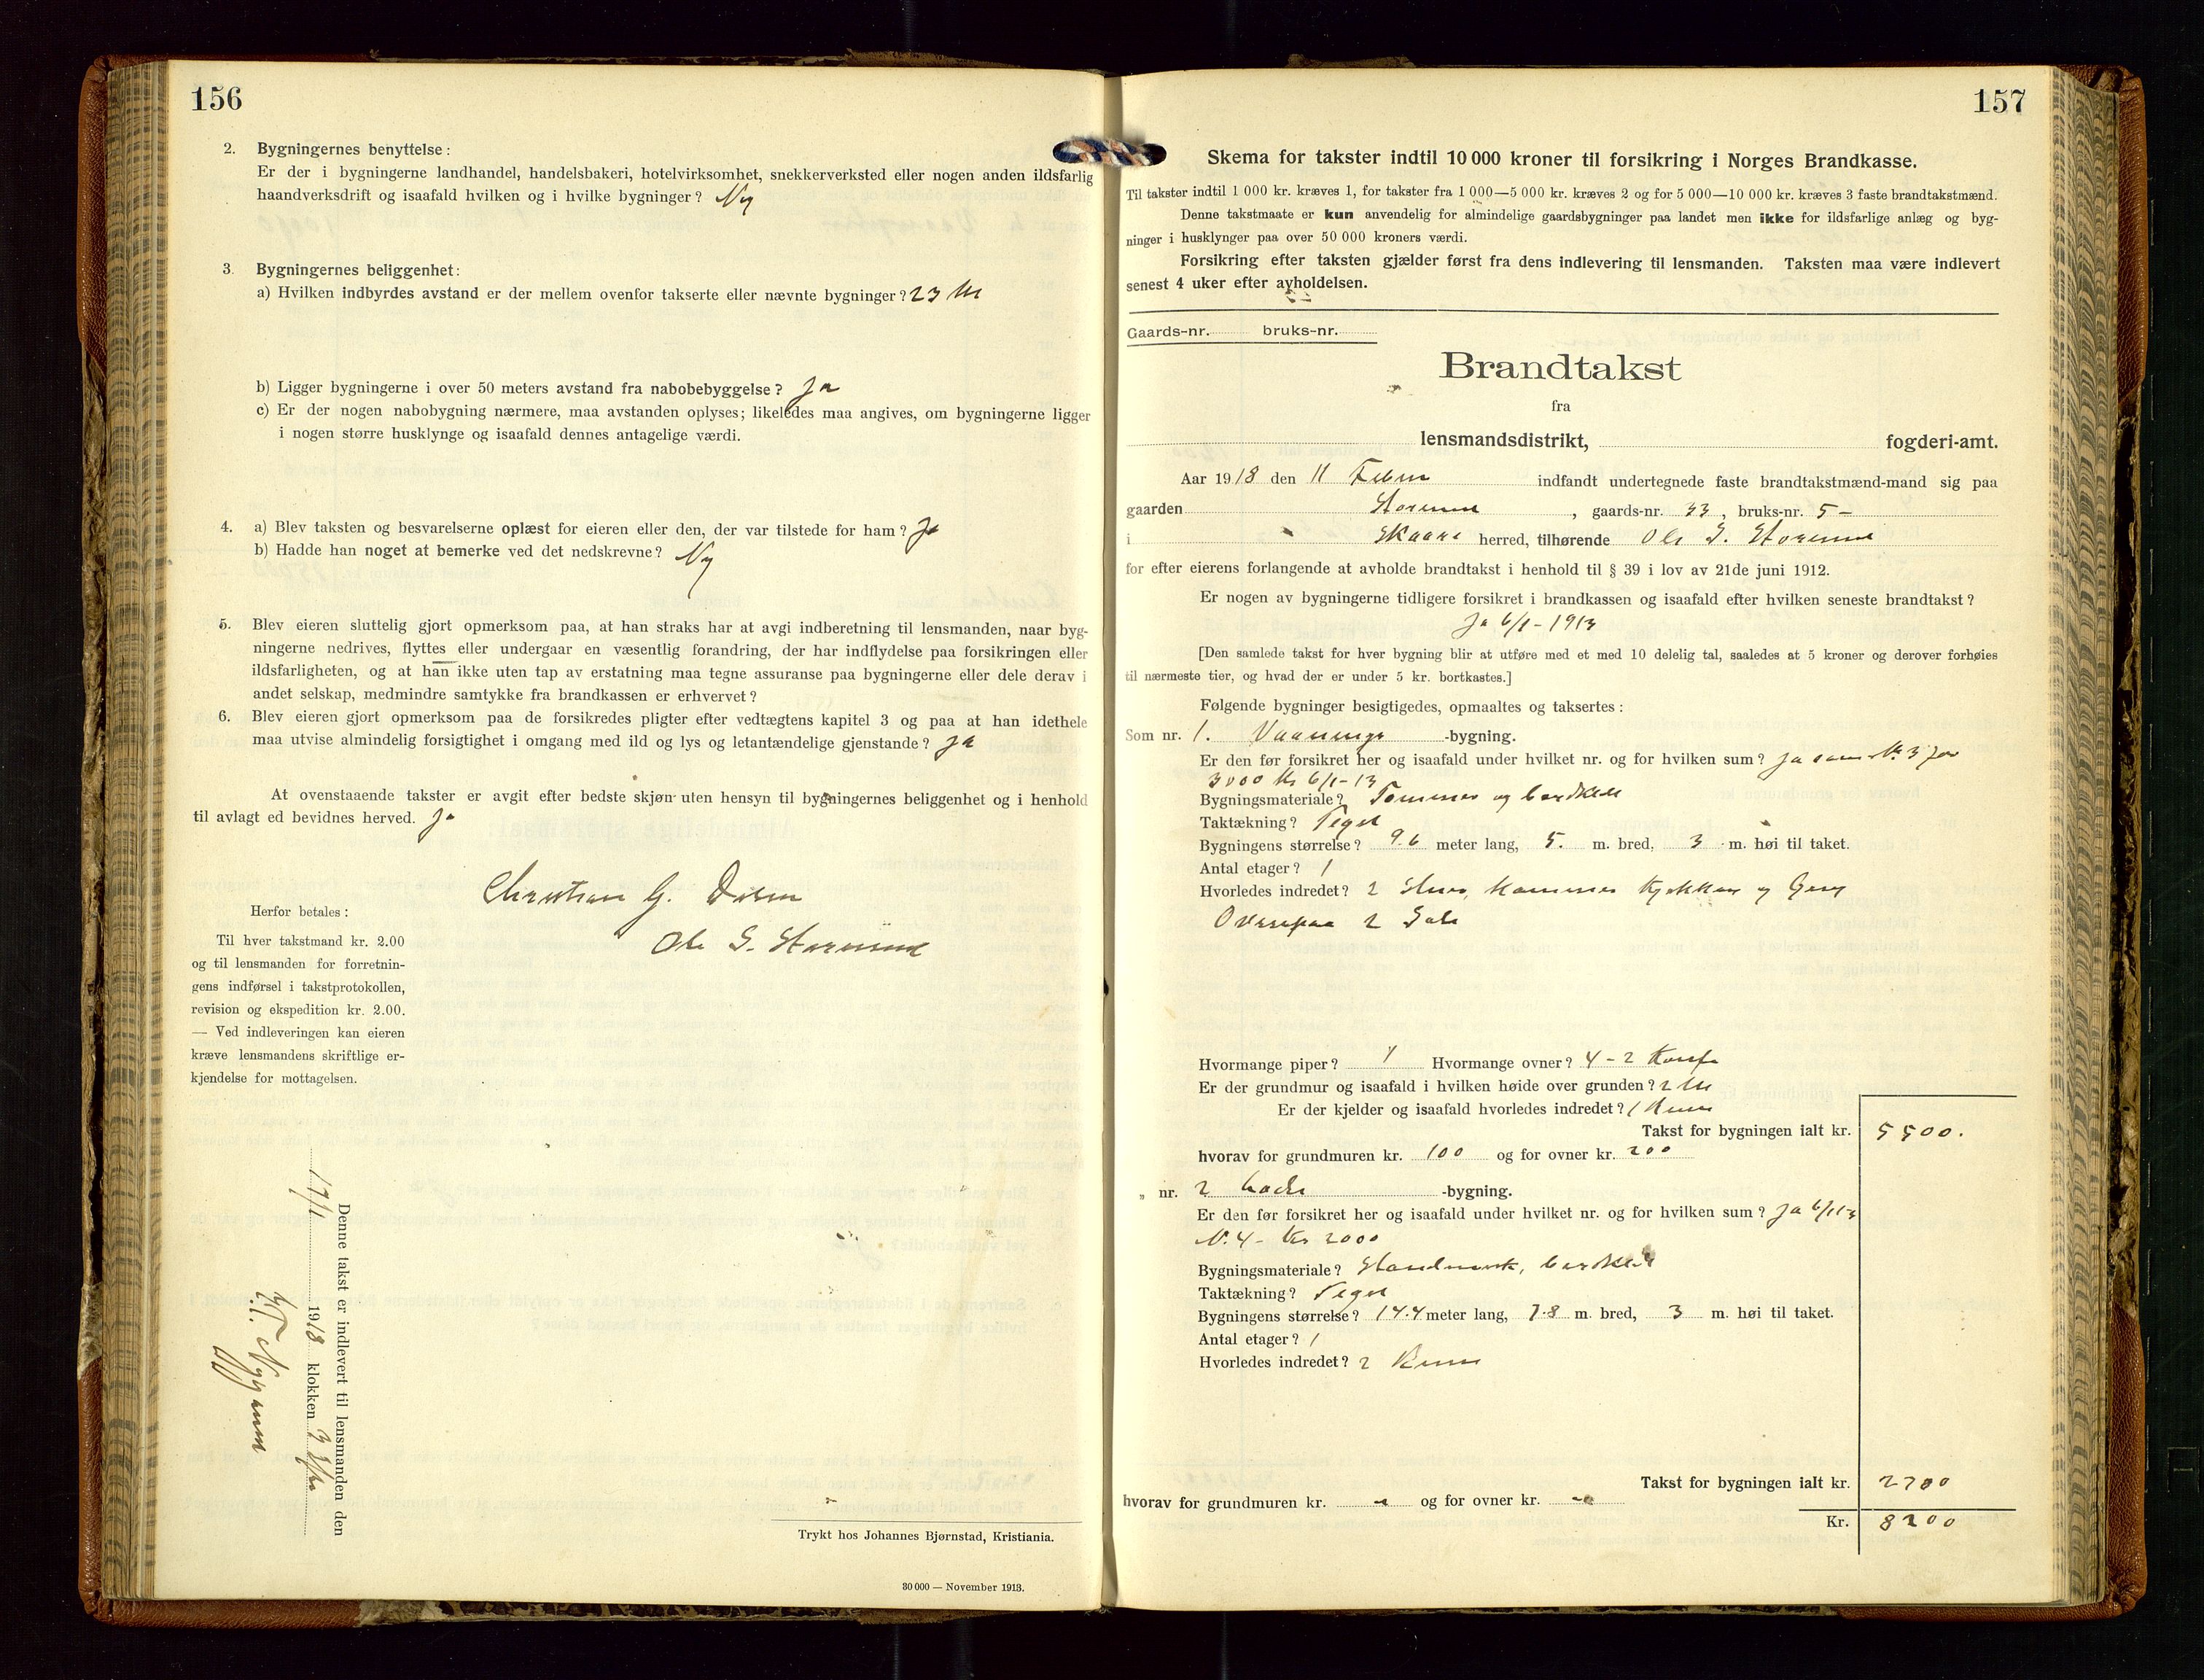 156
2. Bygningernes benyttelse:
Er der i bygningerne landhandel, handelsbakeri, hotelvirksomhet, snekkerverksted eller nogen anden ildsfarlig
haandverksdrift og isaafald hvilken og i hvilke bygninger? Nei
3. Bygningernes beliggenhet:
a) Hvilken indbyrdes avstand er der mellem ovenfor takserte eller nævnte bygninger? 23 M
b) Ligger bygningerne i over 50 meters avstand fra nabobebyggelse? Ja
c) Er der nogen nabobygning nærmere, maa avstanden oplyses; likeledes maa angives, om bygningerne ligger
i nogen større husklynge og isaafald dennes antagelige værdi.
4. a) Blev taksten og besvarelserne oplæst for eieren eller den, der var tilstede for ham? Ja
b) Hadde han noget at bemerke ved det nedskrevne? Nei
5. Blev eieren sluttelig gjort opmerksom paa, at han straks har at avgi indberetning til lensmanden, naar byg-
ningerne nedrives, flyttes eller undergaar en væsentlig forandring, der har indflydelse paa forsikringen eller
ildsfarligheten, og at han ikke uten tap av erstatning maa tegne assuranse paa bygningerne eller dele derav i
andet selskap, medmindre samtykke fra brandkassen er erhvervet?
6. Blev eieren gjort opmerksom paa de forsikredes pligter efter vedtægtens kapitel 3 og paa at han idethele
maa utvise almindelig forsigtighet i omgang med ild og lys og letantændelige gjenstande? Ja
At ovenstaaende takster er avgit efter bedste skjøn uten hensyn til bygningernes beliggenhet og i henhold
til avlagt ed bevidnes herved. Ja
Christian G.
Ole G. Storesund
Herfor betales:
Til hver takstmand kr. 2.00
og til lensmanden for forretnin-
gens indførsel i takstprotokollen,
revision og ekspedition kr. 2.00.
— Ved indleveringen kan eieren
kræve lensmandens skriftlige er-
kjendelse for mottagelsen.
Denne takst er indlevert til lensmanden den
1918 klokken 3
Trykt hos Johannes Bjørnstad, Kristiania.
30 000 — November 1913.
157
Skema for takster indtil 10 000 kroner til forsikring i Norges Brandkasse.
Til takster indtil 1 000 kr. kræves 1, for takster fra 1 000—5 000 kr. kræves 2 og for 5 000—10 000 kr. kræves 3 faste brandtakstmænd.
Denne takstmaate er kun anvendelig for almindelige gaardsbygninger paa landet men ikke for ildsfarlige anlæg og byg-
ninger i husklynger paa over 50 000 kroners værdi.
Forsikring efter taksten gjælder først fra dens indlevering til lensmanden. Taksten maa være indlevert
senest 4 uker efter avholdelsen.
Gaards-nr. bruks-nr.
Brandtakst
fra
lensmandsdistrikt, fogderi-amt.
Aar 1918 den 11 Febru indfandt undertegnede faste brandtakstmænd-mand sig paa
gaarden Storesund , gaards-nr. 33 , bruks-nr. 5 -
i Skaare herred, tilhørende Ole G. Storesund
for efter eierens forlangende at avholde brandtakst i henhold til § 39 i lov av 21de juni 1912.
Er nogen av bygningerne tidligere forsikret i brandkassen og isaafald efter hvilken seneste brandtakst?
Ja 6/1-1913
[Den samlede takst for hver bygning blir at utføre med et med 10 delelig tal, saaledes at 5 kroner og derover forhøies
til nærmeste tier, og hvad der er under 5 kr. bortkastes.]
Følgende bygninger besigtigedes, opmaaltes og taksertes:
Som nr. 1. Vaanings -bygning.
Er den før forsikret her og isaafald under hvilket nr. og for hvilken sum? Ja som N. 3 for
3000 Kr 6/1-13
Bygningsmateriale? Tømmer og bordklæ
Taktækning? Tegel
Bygningens størrelse? 9.6 meter lang, 5. m. bred, 3 m. høi til taket.
Antal etager? 1
Hvorledes indredet? 2 Stuer, Kammer Kjøkken og Gang
Ovenpaa 2 Sale
Hvormange piper? 1 Hvormange ovner? 4 - 2
Er der grundmur og isaafald i hvilken høide over grunden? 2 M
Er der kjelder og isaafald hvorledes indredet? 1 Rum
Takst for bygningen ialt kr. 5500.
hvorav for grundmuren kr. 100 og for ovner kr. 200
„ nr. 2 Løde -bygning.
Er den før forsikret her og isaafald under hvilket nr. og for hvilken sum? Ja 6/1-13
N. 4 - Kr 2000
Bygningsmateriale? Standverk, bordklæ
Taktækning? Tegel
Bygningens størrelse? 14.4 meter lang, 7.8 m. bred, 3 m. høi til taket.
Antal etager? 1
Hvorledes indredet? 2 Rum
Takst for bygningen ialt kr. 2700
hvorav for grundmuren kr. - og for ovner kr. -
Kr. 8200